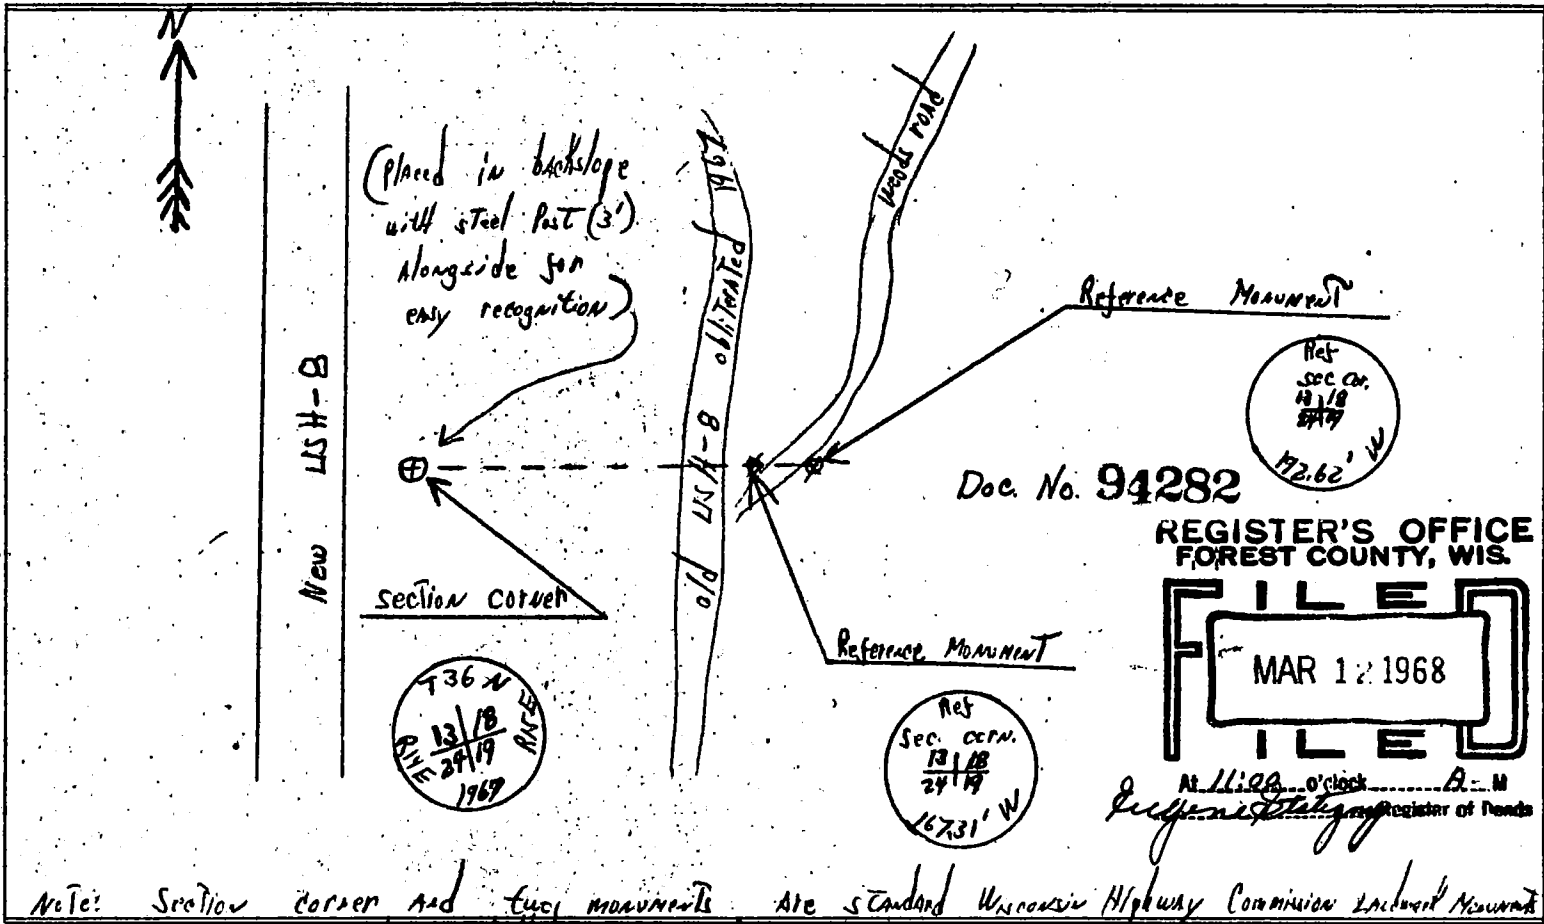 N
(Placed in backslope
with steel Post (3')
Alongside for
easy recognition)
New USH-8
old USH-8 obliterated 1967
woods road
Reference Monument
Ref
Sec Cor.
13 | 18
24 | 19
172.62' W
Doc. No. 94282
REGISTER'S OFFICE
FOREST COUNTY, WIS.
FILED
MAR 12 1968
FILED
At 11:00 o'clock A. M
Register of Deeds
Section Corner
T36N
R14E
13 | 18
24 | 19
1967
Reference Monument
Ref
Sec. corn.
13 | 18
24 | 19
167.31' W
Note: Section corner And two monuments Are standard Wisconsin Highway Commission Landmark Monuments